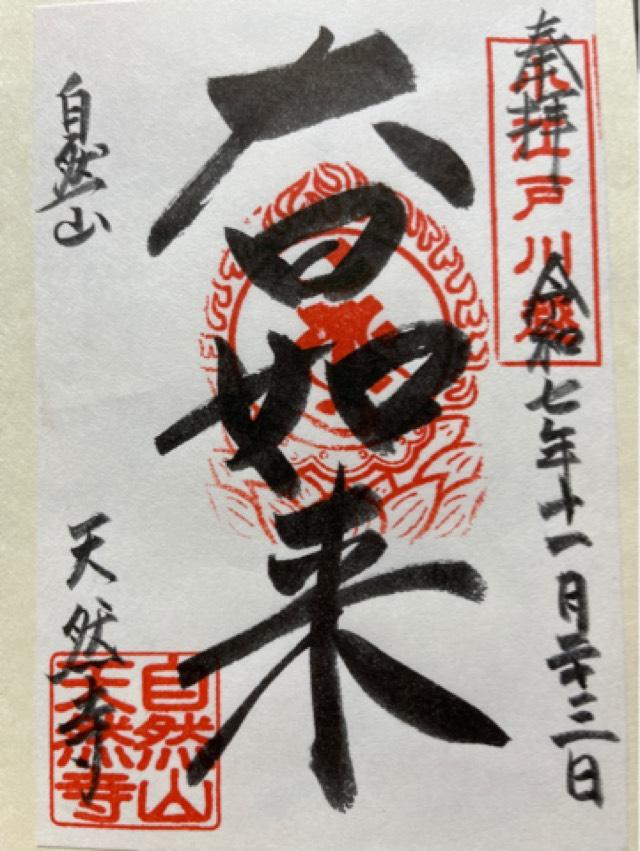 奉拝
小江戸川越
令和七年十一月二十三日
大日如来
自然山
天然寺
自然山
天然寺